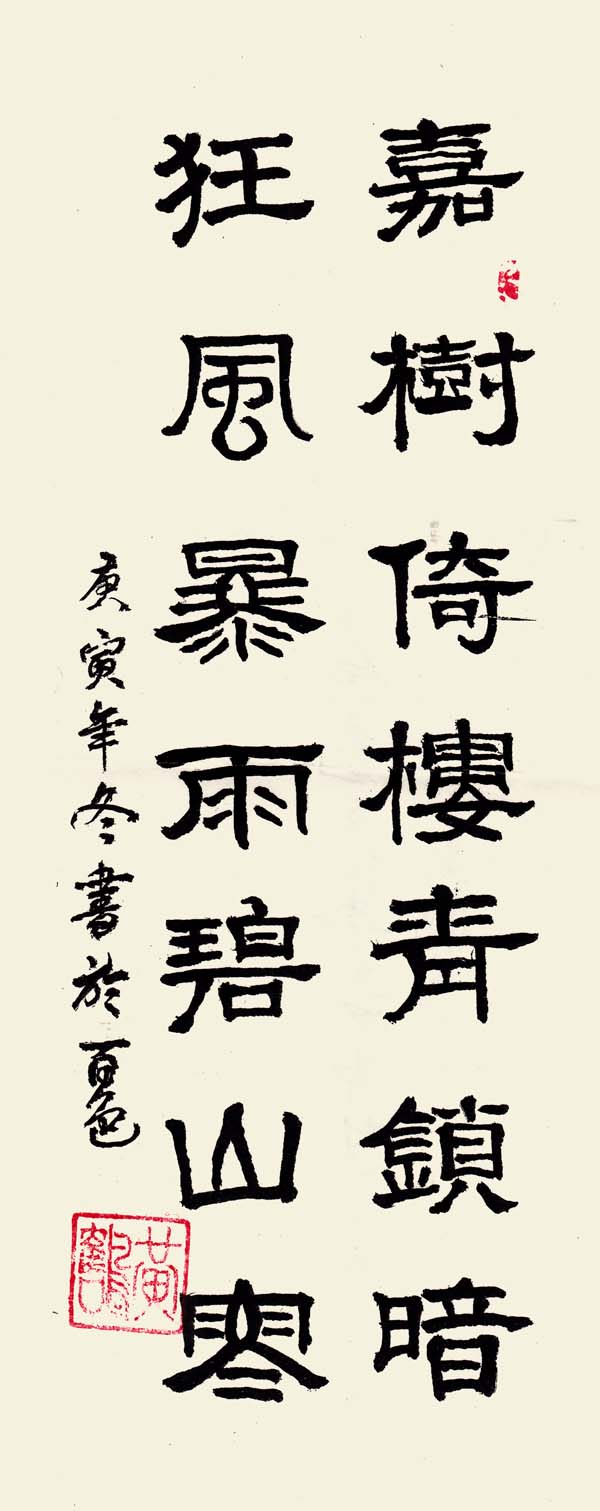 嘉樹倚樓青鎖暗
狂風暴雨碧山寒
庚寅年冬書於百色
黄